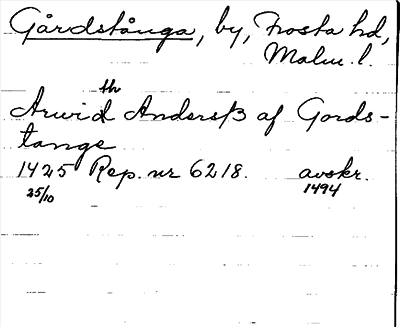 Gårdstånga, by, Frosta hd,
Malm. l.
th
Arwid Andersß af Gords-
tange
1425 Rep. nr 6218. avskr.
25/10 1494